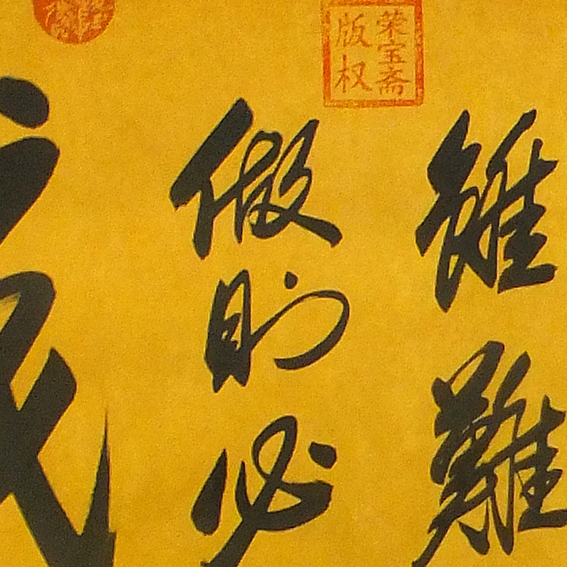 雖難
做則必
荣宝斋
版权